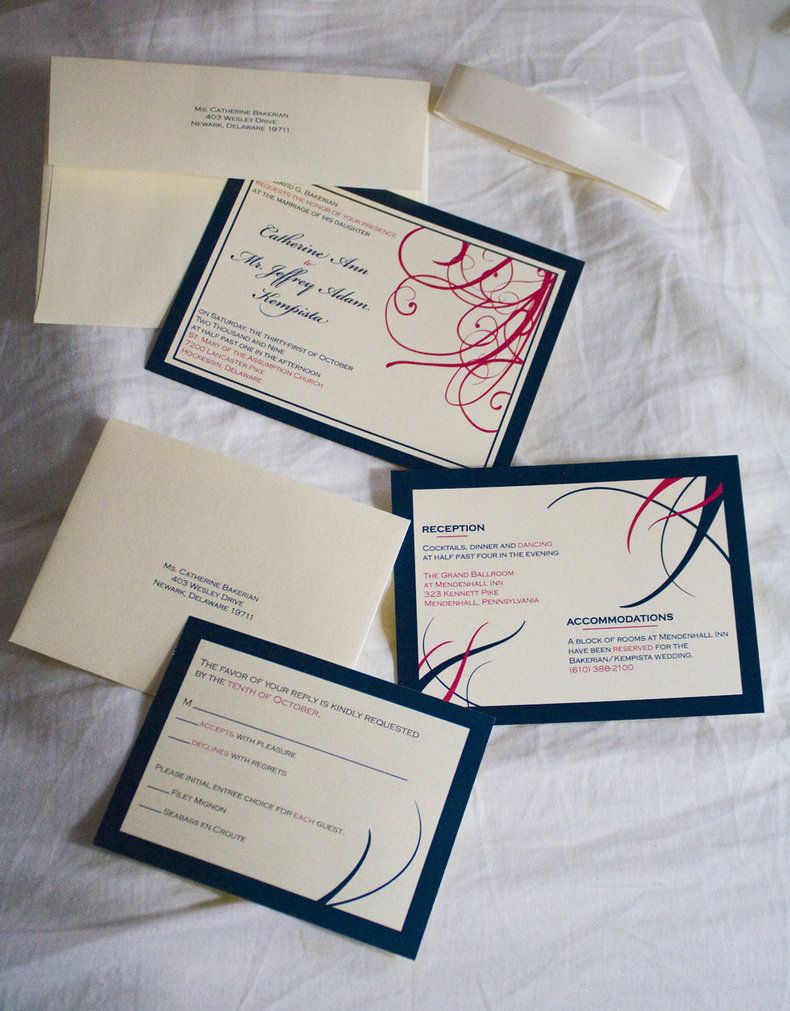 Ms. Catherine Bakerian
403 Wesley Drive
Newark, Delaware 19711
David G. Bakerian
requests the honor of your presence
at the marriage of his daughter
Catherine Ann
to
Mr. Jeffrey Adam
Kempista
on Saturday, the thirty-first of October
Two Thousand and Nine
at half past one in the afternoon
St. Mary of the Assumption Church
7200 Lancaster Pike
Hockessin, Delaware
Ms. Catherine Bakerian
403 Wesley Drive
Newark, Delaware 19711
Reception
Cocktails, dinner and dancing
at half past four in the evening
The Grand Ballroom
at Mendenhall Inn
323 Kennett Pike
Mendenhall, Pennsylvania
Accommodations
A block of rooms at Mendenhall Inn
have been reserved for the
Bakerian/Kempista wedding.
(610) 388-2100
The favor of your reply is kindly requested
by the tenth of October.
M
accepts with pleasure
declines with regrets
Please initial entree choice for each guest.
Filet Mignon
Seabass en Croute